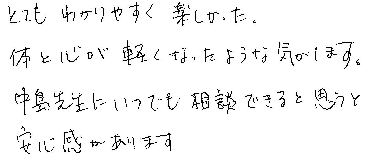 とても わかりやすく 楽しかった。
体と心が 軽くなったような気がします。
中島先生にいつでも 相談できると思うと
安心感があります